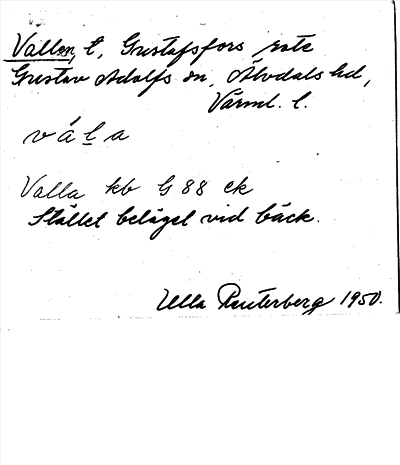 Vallen, t, Gustafsfors rote
Gustav Adolfs sn, Älvdals hd,
Värml. l.
vá̀ḷa
Valla kb G 88 ek
Stället beläget vid bäck.
Ulla Reuterberg 1950.